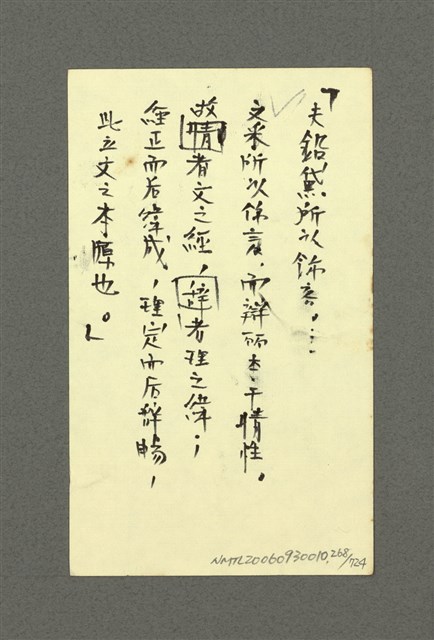 「夫鉛黛所以飾容，…
文采所以飾言，而辯麗本于情性。
故情者文之經，辭者理之緯；
經正而后緯成，理定而后辭暢，
此立文之本源也。」
NMTL20060930010.268/724